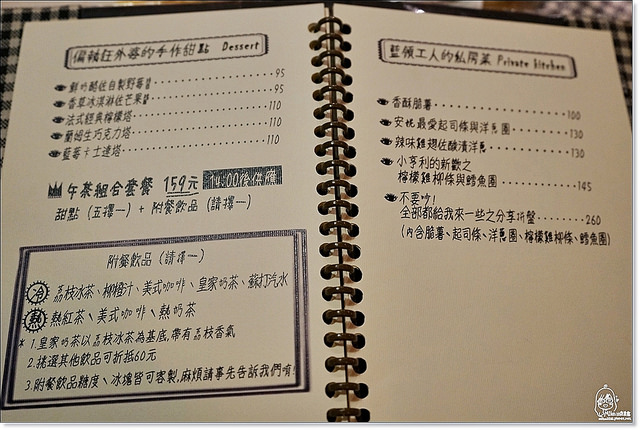 偏執狂外婆的手作甜點 Dessert
鮮奶酪佐自製野莓醬 95
香草冰淇淋佐芒果醬 95
法式經典檸檬塔 110
蘭姆生巧克力塔 110
藍莓卡士達塔 110
午茶組合套餐 159元 14:00後供應
甜點(五擇一) + 附餐飲品(請擇一)
附餐飲品(請擇一)
冷 荔枝冰茶、柳橙汁、美式咖啡、皇家奶茶、蘇打汽水
熱 熱紅茶、美式咖啡、熱奶茶
* 1.皇家奶茶以荔枝冰茶為基底,帶有荔枝香氣
2.挑選其他飲品可折抵60元
3.附餐飲品糖度、冰塊皆可客製,麻煩請事先告訴我們唷!
藍領工人的私房菜 Private kitchen
香酥脆薯 100
安枕最愛起司條與洋蔥圈 130
辣味雞翅佐酸漬洋蔥 130
小亨利的新歡之
檸檬雞柳條與鱈魚圈 145
不要吵!
全部都給我來一些之分享拼盤 260
(內含脆薯、起司條、洋蔥圈、檸檬雞柳條、鱈魚圈)